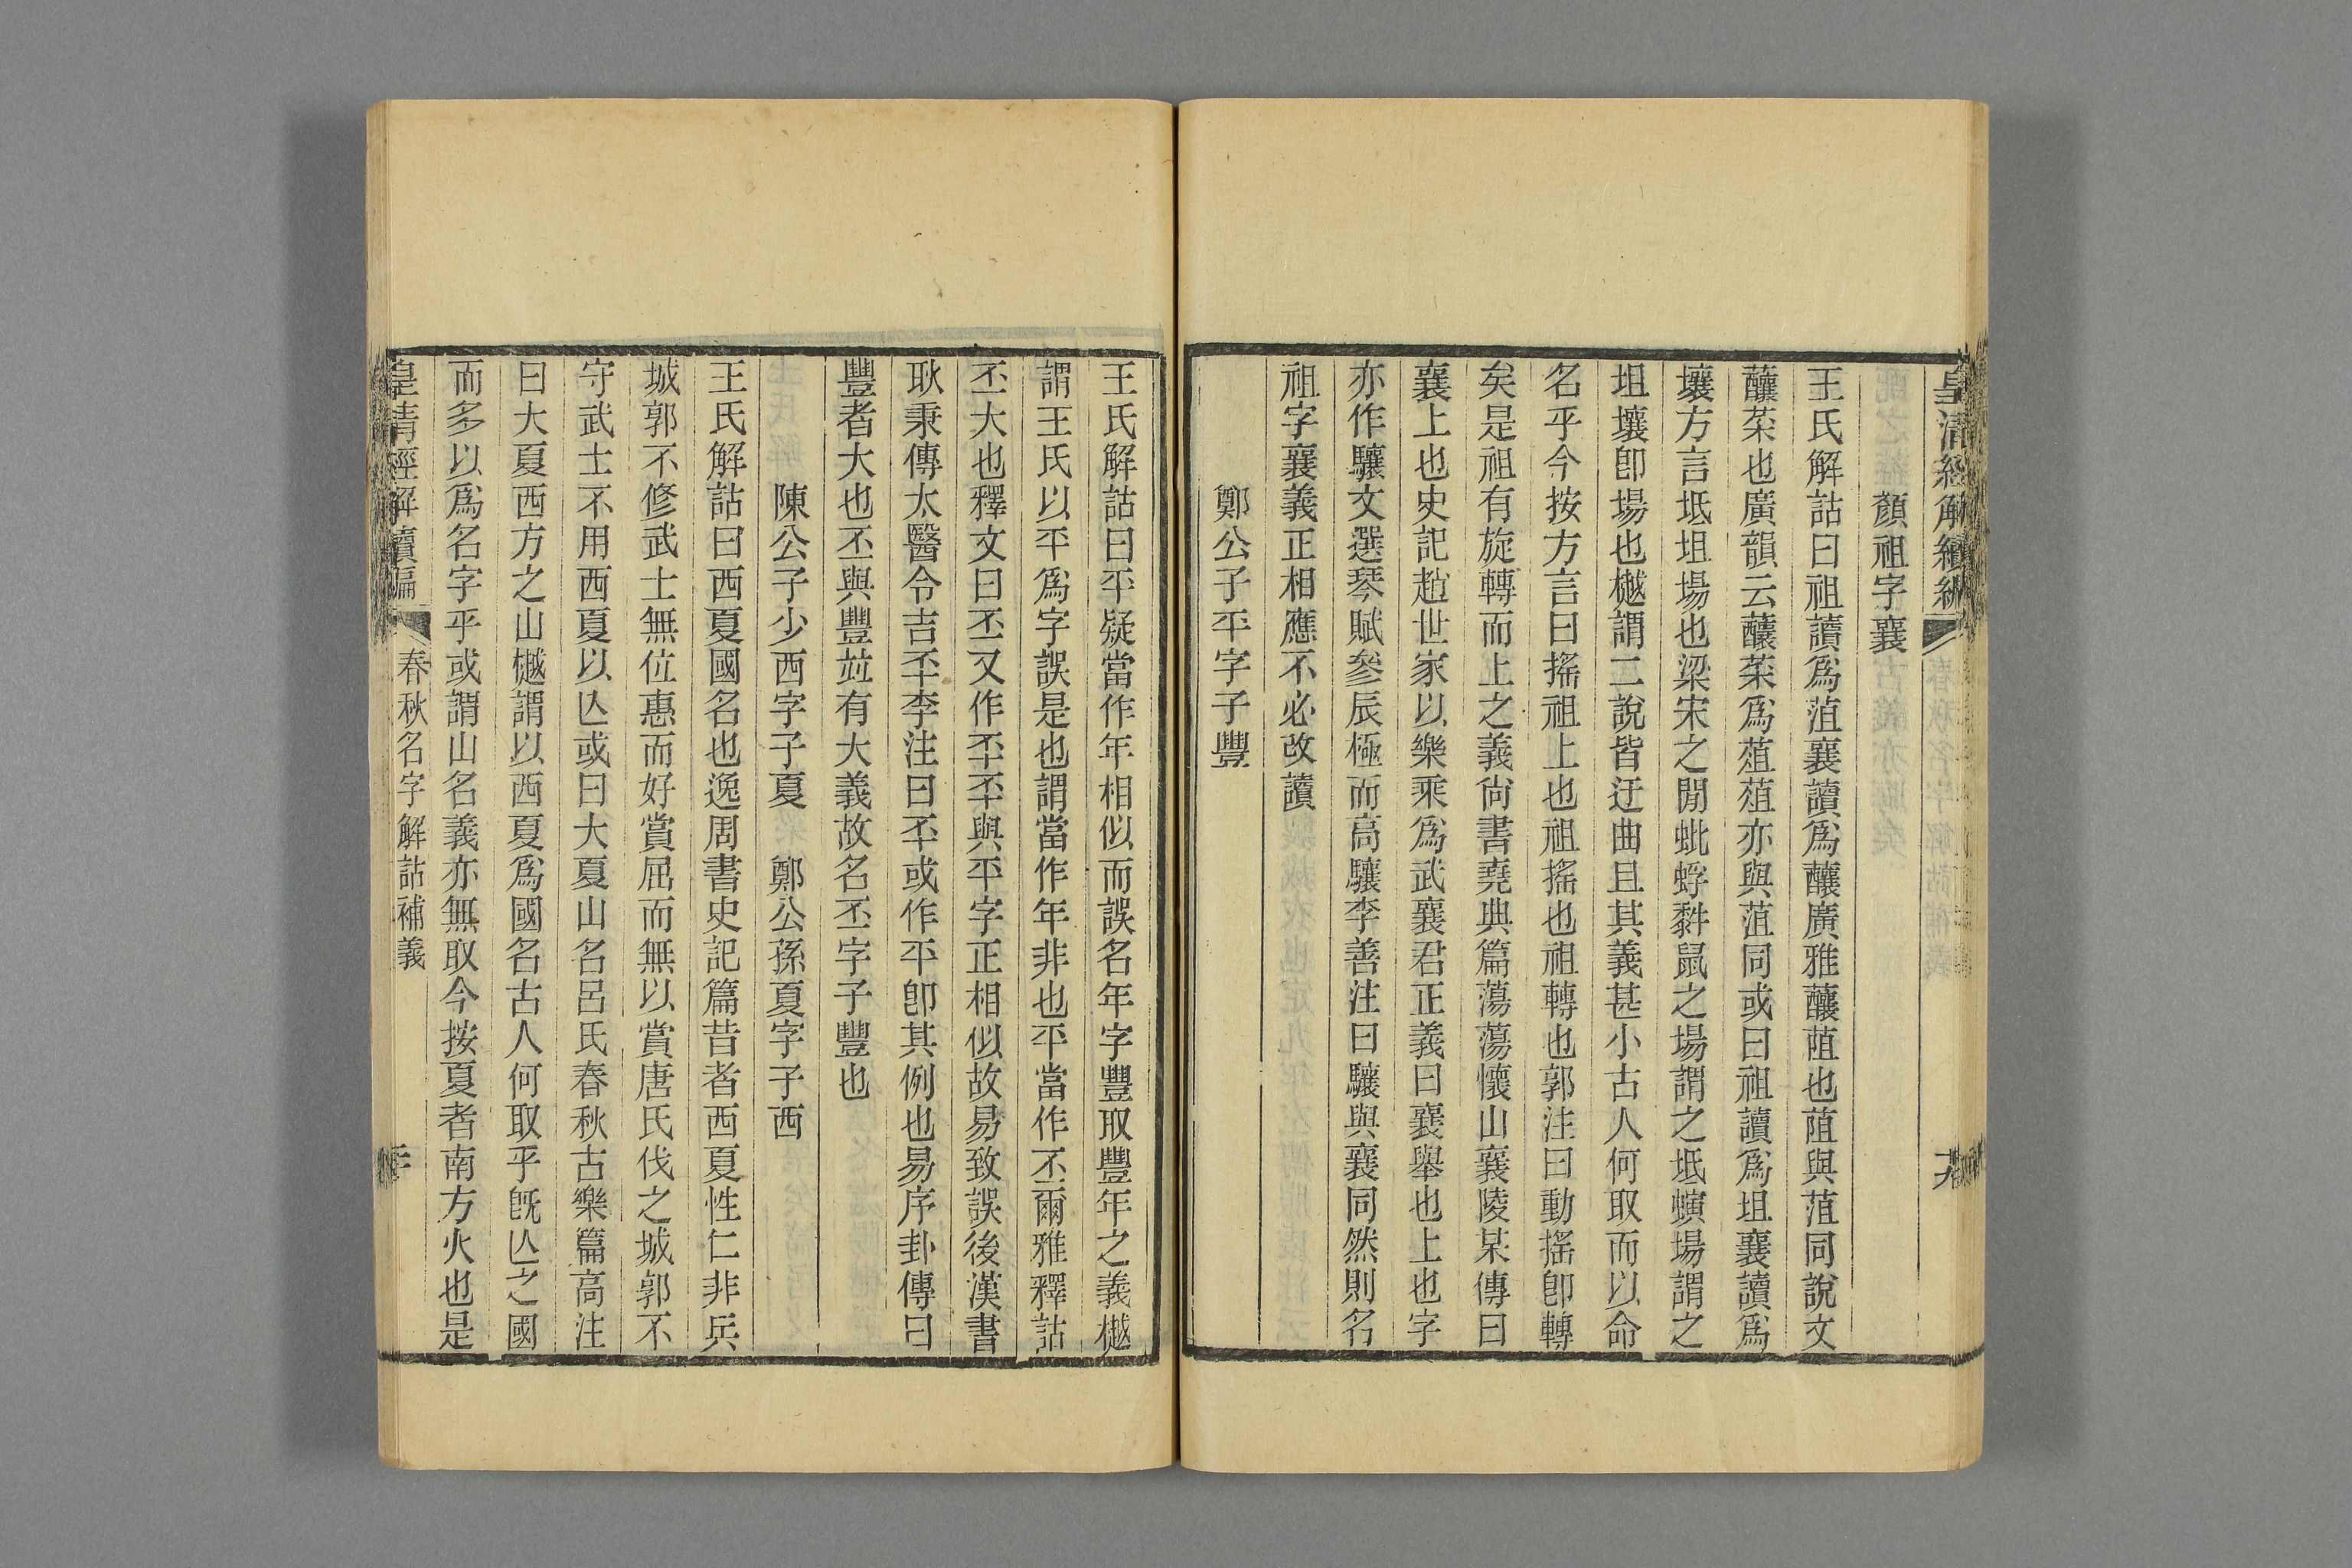 皇清經解續編
顏祖字襄
王氏解詁曰祖讀爲菹襄讀爲釀廣雅釀䕃也䕃與菹同說文
釀菜也廣韻云釀菜爲葅葅亦與菹同或曰祖讀爲坦襄讀爲
壤方言坻坦場也梁宋之閒蚍蜉䵓鼠之場謂之坻螾場謂之
坦壤卽場也樾謂二說皆迂曲且其義甚小古人何取而以命
名乎今按方言曰搖祖上也祖搖也祖轉也郭注曰動搖卽轉
矣是祖有旋轉而上之義尙書堯典篇蕩蕩懷山襄陵某傳曰
襄上也史記趙世家以樂乘爲武襄君正義曰襄舉也上也字
亦作驤文選琴賦參辰極而高驤李善注曰驤與襄同然則名
祖字襄義正相應不必改讀
鄭公子平字子豐
王氏解詁曰平疑當作年相似而誤名年字豐取豐年之義樾
謂王氏以平爲字誤是也謂當作年非也平當作丕爾雅釋詁
丕大也釋文曰丕又作㔻㔻與平字正相似故易致誤後漢書
耿秉傳太醫令吉㔻李注曰㔻或作平卽其例也易序卦傳曰
豐者大也丕與豐竝有大義故名丕字子豐也
陳公子少西字子夏　鄭公孫夏字子西
王氏解詁曰西夏國名也逸周書史記篇昔者西夏性仁非兵
城郭不修武士無位惠而好賞屈而無以賞唐氏伐之城郭不
守武士不用西夏以亾或曰大夏山名呂氏春秋古樂篇高注
曰大夏西方之山樾謂以西夏爲國名古人何取乎旣亾之國
而多以爲名字乎或謂山名義亦無取今按夏者南方火也是
皇清經解續編　春秋名字解詁補義